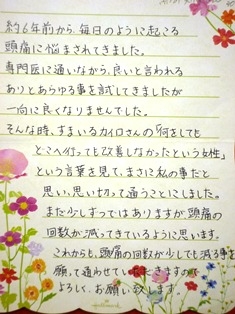 約6年前から、毎日のように起こる
頭痛に悩まされてきました。
専門医に通いながら、良いと言われる
ありとあらゆる事を試してきましたが
一向に良くなりませんでした。
そんな時、すまいるカイロさんの「何をしても
どこへ行っても改善しなかったという女性」
という言葉を見て、まさに私の事だと
思い、思い切って通うことにしました。
まだ少しずつではありますが、頭痛の
回数が減ってきているように思います。
これからも、頭痛の回数が少しでも減る事を
願って通わせていただきますので
よろしく、お願い致します。
Hallmark